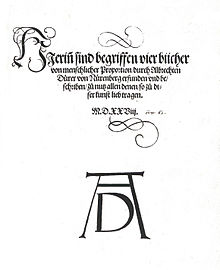 Hierinn sind begriffen vier bücher
von menschlicher Proportion durch Albrechten
Dürer von Nürenberg erfunden vnd be⸗
schriben zů nutz allen denen so zů di⸗
ser kunst lieb tragen.
M.D.XXViij.
AD